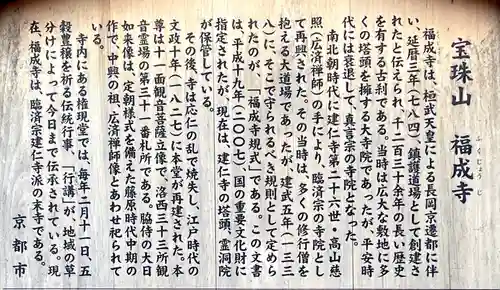 宝珠山　福成寺
ふくじょうじ
福成寺は、桓武天皇による長岡京遷都に伴
い、延暦三年（七八四）鎮護道場として創建さ
れたと伝えられ、千二百三十余年の長い歴史
を有する古刹である。当時は広大な敷地に多
くの塔頭を擁する大寺院であったが、平安時
代には衰退して、真言宗の寺院となった。
南北朝時代に建仁寺第二十六世・高山慈
照（広済禅師）の手により、臨済宗の寺院とし
て再興された。その当時は、多くの修行僧を
抱える大道場であったが、建武五年（一三三
八）に、そこで守られるべき規則として定めら
れたのが、「福成寺規式」である。この文書
は、平成十九年（二〇〇七）国の重要文化財に
指定されたが、現在は、建仁寺の塔頭、霊洞院
が保管している。
その後、寺は応仁の乱で焼失し、江戸時代の
文政十年（一八二七）に本堂が再建された。本
尊は十一面観音菩薩立像で、洛西三十三所観
音霊場の第三十一番札所である。脇侍の大日
如来像は、定朝様式を備えた藤原時代中期の
作で、中興の祖、広済禅師像とあわせ祀られて
いる。
寺内にある権現堂では、毎年二月十一日、五
穀豊穣を祈る伝統行事、「行講」が、地域の草
分けによって今日まで伝承されている。現
在、福成寺は、臨済宗建仁寺派の末寺である。
京都市